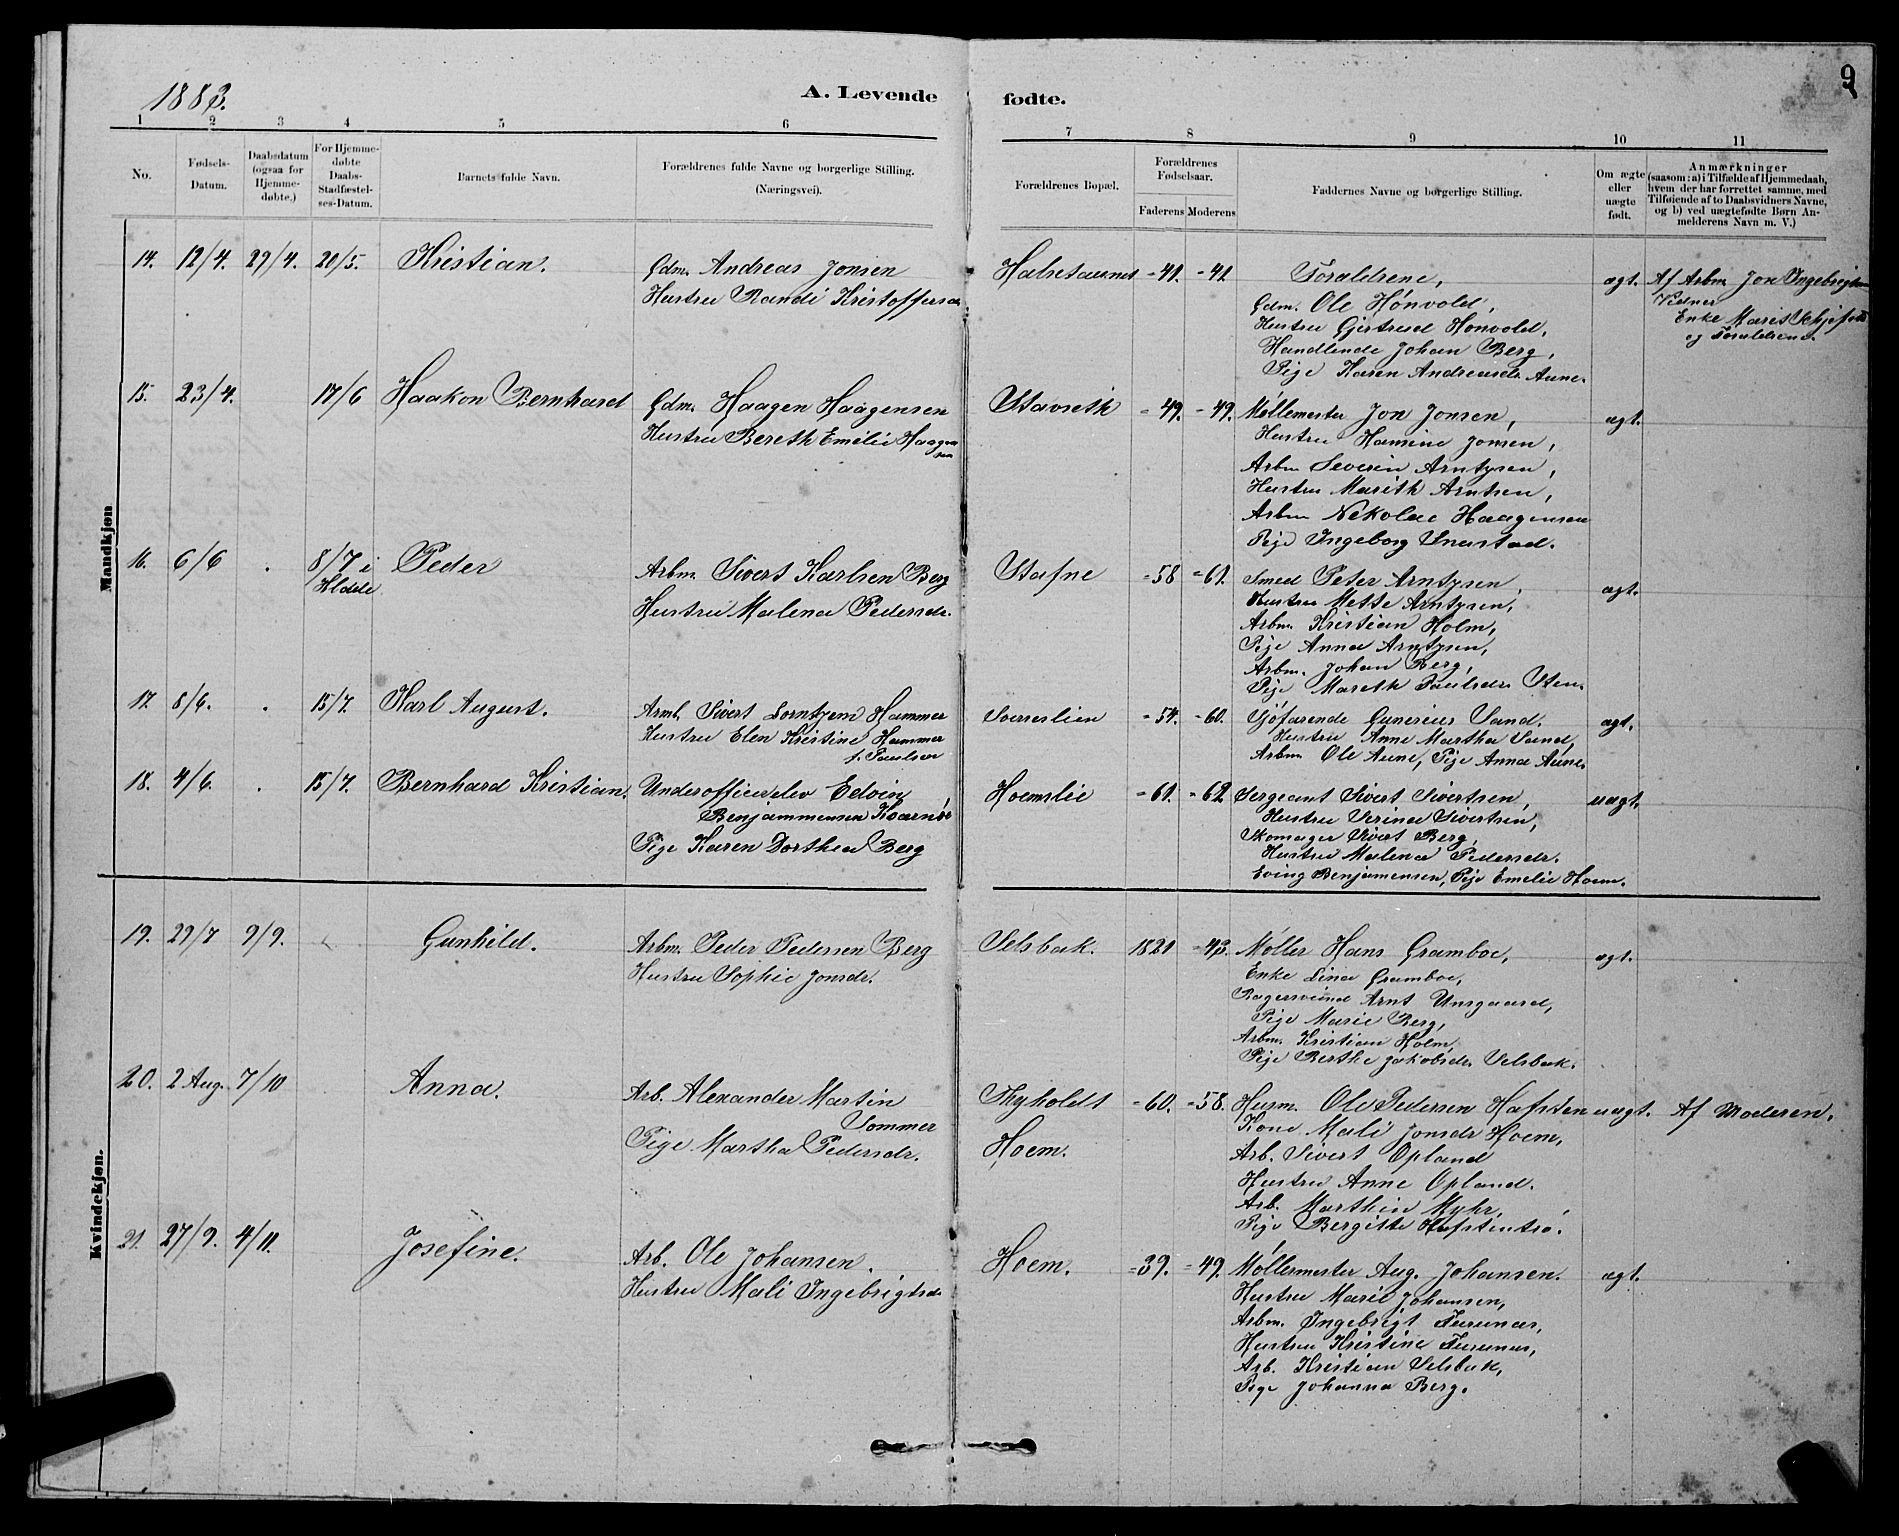 1883.
A. Levende
fødte.
9
1 2 3 4 5 6 7 8 9 10 11
No.
Fødsels-
Datum.
Daabsdatum
(ogsaa for
Hjemme-
døbte.)
For Hjemme-
døbte
Daabs-
Stadfæstel-
ses-Datum.
Barnets fulde Navn.
Forældrenes fulde Navne og borgerlige Stilling.
(Næringsvei).
Forældrenes Bopæl.
Forældrenes
Fødselsaar.
Faderens Moderens
Faddernes Navne og borgerlige Stilling.
Om ægte
eller
uægte
født.
Anmærkninger
(saasom: a) i Tilfælde af Hjemmedaab,
hvem der har forrettet samme, med
Tilføiende af to Daabsvidners Navne,
og b) ved uægtefødte Børn An-
melderens Navn m. V.)
Mandkjøn
14. 12/4. 29/4. 20/5. Kristian.
Gdm. Andreas Jonsen
Hustru Randi Kristoffersen
Halsetaunet =41. =41
Foraldrene,
Gdm. Ole Hønvold,
Hustru Gjertrud Hønvold,
Handlende Johan Berg,
Pige Karen Andreasdr. Aune.
ægt.
Af Arbm. Jon Ingebrigtsen
Vidner
Enke Marit
og Foraldrene.
15. 23/4. 17/6 Haakon Bernhard
Gdm. Haagen Haagensen
Hustru Bereth Emilie Haagen
sen
Stavseth =49. =49.
Møllemester Jon Jonsen,
Hustru Hansine Jonsen,
Arbm Severin Arntzen,
Hustru Marith Arntsen,
Arbm Nekolai Haagensen
Pige Ingeborg
ægt.
16. 6/6 . 8/7 i
Klæbu
Peder
Arbm. Sivert Karlsen Berg
Hustru Malena Pedersdr.
Stafne =58 =61.
Smed Peter Arntzen,
Hustru Mette Arntzen,
Arbm. Kristian Holm,
Pige Anna Arntzen,
Arbm. Johan Berg,
Pige Mareth Paulsdr.
ægt.
17. 8/6. . 15/7. Karl August.
Arbm. Sivert Lorntzen Hammer
Hustru Elen Kristine Hammer
f. Paulsen
=54. =60.
Sjøfarende Gunerius Sand,
Hustru Anne Martha Sand,
Arbm Ole Aune, Pige Anna Aune
ægt.
18. 4/6. . 15/7. Bernhard Kristian.
Underofficerelev Edvin
Benjaminsen
Pige Karen Dorthea Berg
Hoemslie =61. =62
Sergeant Sivert Sivertsen,
Hustru Serina Sivertsen,
Skomager Sivert Berg,
Hustru Malena Pedersdr.
Eving Benjamensen, Pige Emelie Hoem.
uægt.
Kvindekjøn.
19. 29/7 9/9. Gunhild.
Arbm. Peder Pedersen Berg
Hustru Sophie Jonsdr.
Selsbak. 1821 =43.
Møller Hans Gramboe,
Enke Lina Gramboe,
Bagersvend Arnt
Pige Marie Berg,
Arbm. Kristian Holm,
Pige Berthe Jakobsdr. Selsbak.
ægt.
20. 2 Aug. 7/10 Anna.
Arb. Alexander Martin
Sommer
Pige Martha Pedersdr.
Thyholdt
Hoem.
=60. =58.
Husm. Ole Pedersen Hafsten
Kone Mali Jonsdr Hoem,
Arb. Sivert Opland
Hustru Anne Opland.
Arb. Marthin Myhr,
Pige Bergitte
uægt.
Af Moderen.
21. 27/9. 4/11. Josefine.
Arb. Ole Johansen.
Hustru Mali Ingebrigtsdr
Hoem. =39. =49.
Møllermester Aug. Johansen.
Hustru Marie Johansen,
Arbm. Ingebrigt Furunes,
Hustru Kristine Furunes,
Arb. Kristian Selsbak,
Pige Johanna Berg.
ægt.